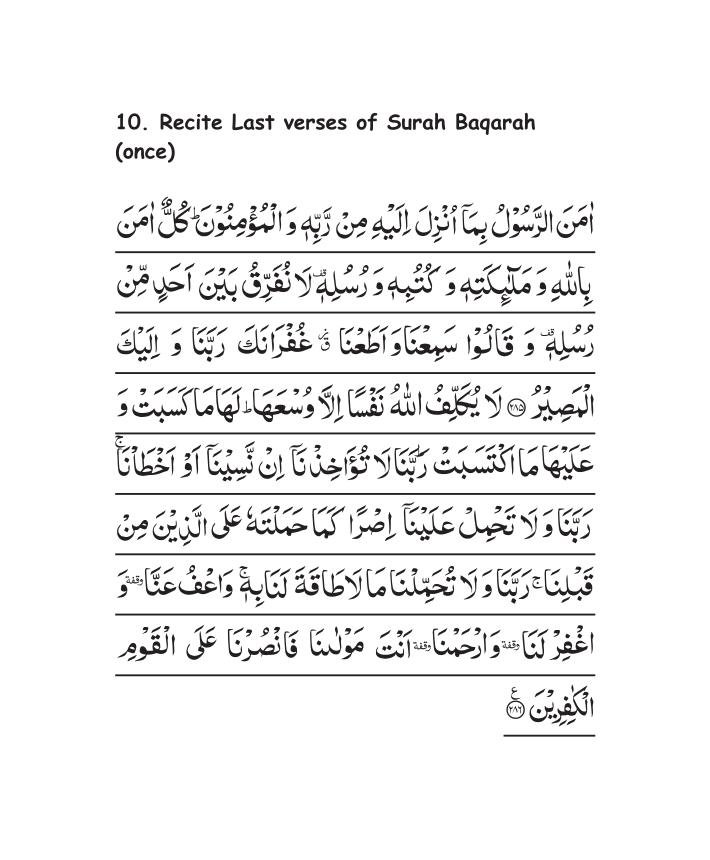 10. Recite Last verses of Surah Baqarah
(once)
اٰمَنَ الرَّسُوْلُ بِمَاۤ اُنْزِلَ اِلَيْهِ مِنْ رَّبِّهٖ وَ الْمُؤْمِنُوْنَؕ كُلٌّ اٰمَنَ
بِاللّٰهِ وَ مَلٰٓئِكَتِهٖ وَ كُتُبِهٖ وَ رُسُلِهٖ۫ لَا نُفَرِّقُ بَيْنَ اَحَدٍ مِّنْ
رُسُلِهٖ۫ وَ قَالُوْا سَمِعْنَا وَ اَطَعْنَا ٘ۗ غُفْرَانَكَ رَبَّنَا وَ اِلَيْكَ
الْمَصِيْرُ ﴿۲۸۵﴾ لَا يُكَلِّفُ اللّٰهُ نَفْسًا اِلَّا وُسْعَهَاؕ لَهَا مَا كَسَبَتْ وَ
عَلَيْهَا مَا اكْتَسَبَتْؕ رَبَّنَا لَا تُؤَاخِذْنَاۤ اِنْ نَّسِيْنَاۤ اَوْ اَخْطَاْنَاۚ
رَبَّنَا وَ لَا تَحْمِلْ عَلَيْنَاۤ اِصْرًا كَمَا حَمَلْتَهٗ عَلَى الَّذِيْنَ مِنْ
قَبْلِنَاۚ رَبَّنَا وَ لَا تُحَمِّلْنَا مَا لَا طَاقَةَ لَنَا بِهٖۚ وَ اعْفُ عَنَّا وقفة وَ
اغْفِرْ لَنَا وقفة وَ ارْحَمْنَا وقفة اَنْتَ مَوْلٰىنَا فَانْصُرْنَا عَلَى الْقَوْمِ
الْكٰفِرِيْنَ ﴿۲۸۶﴾ ع